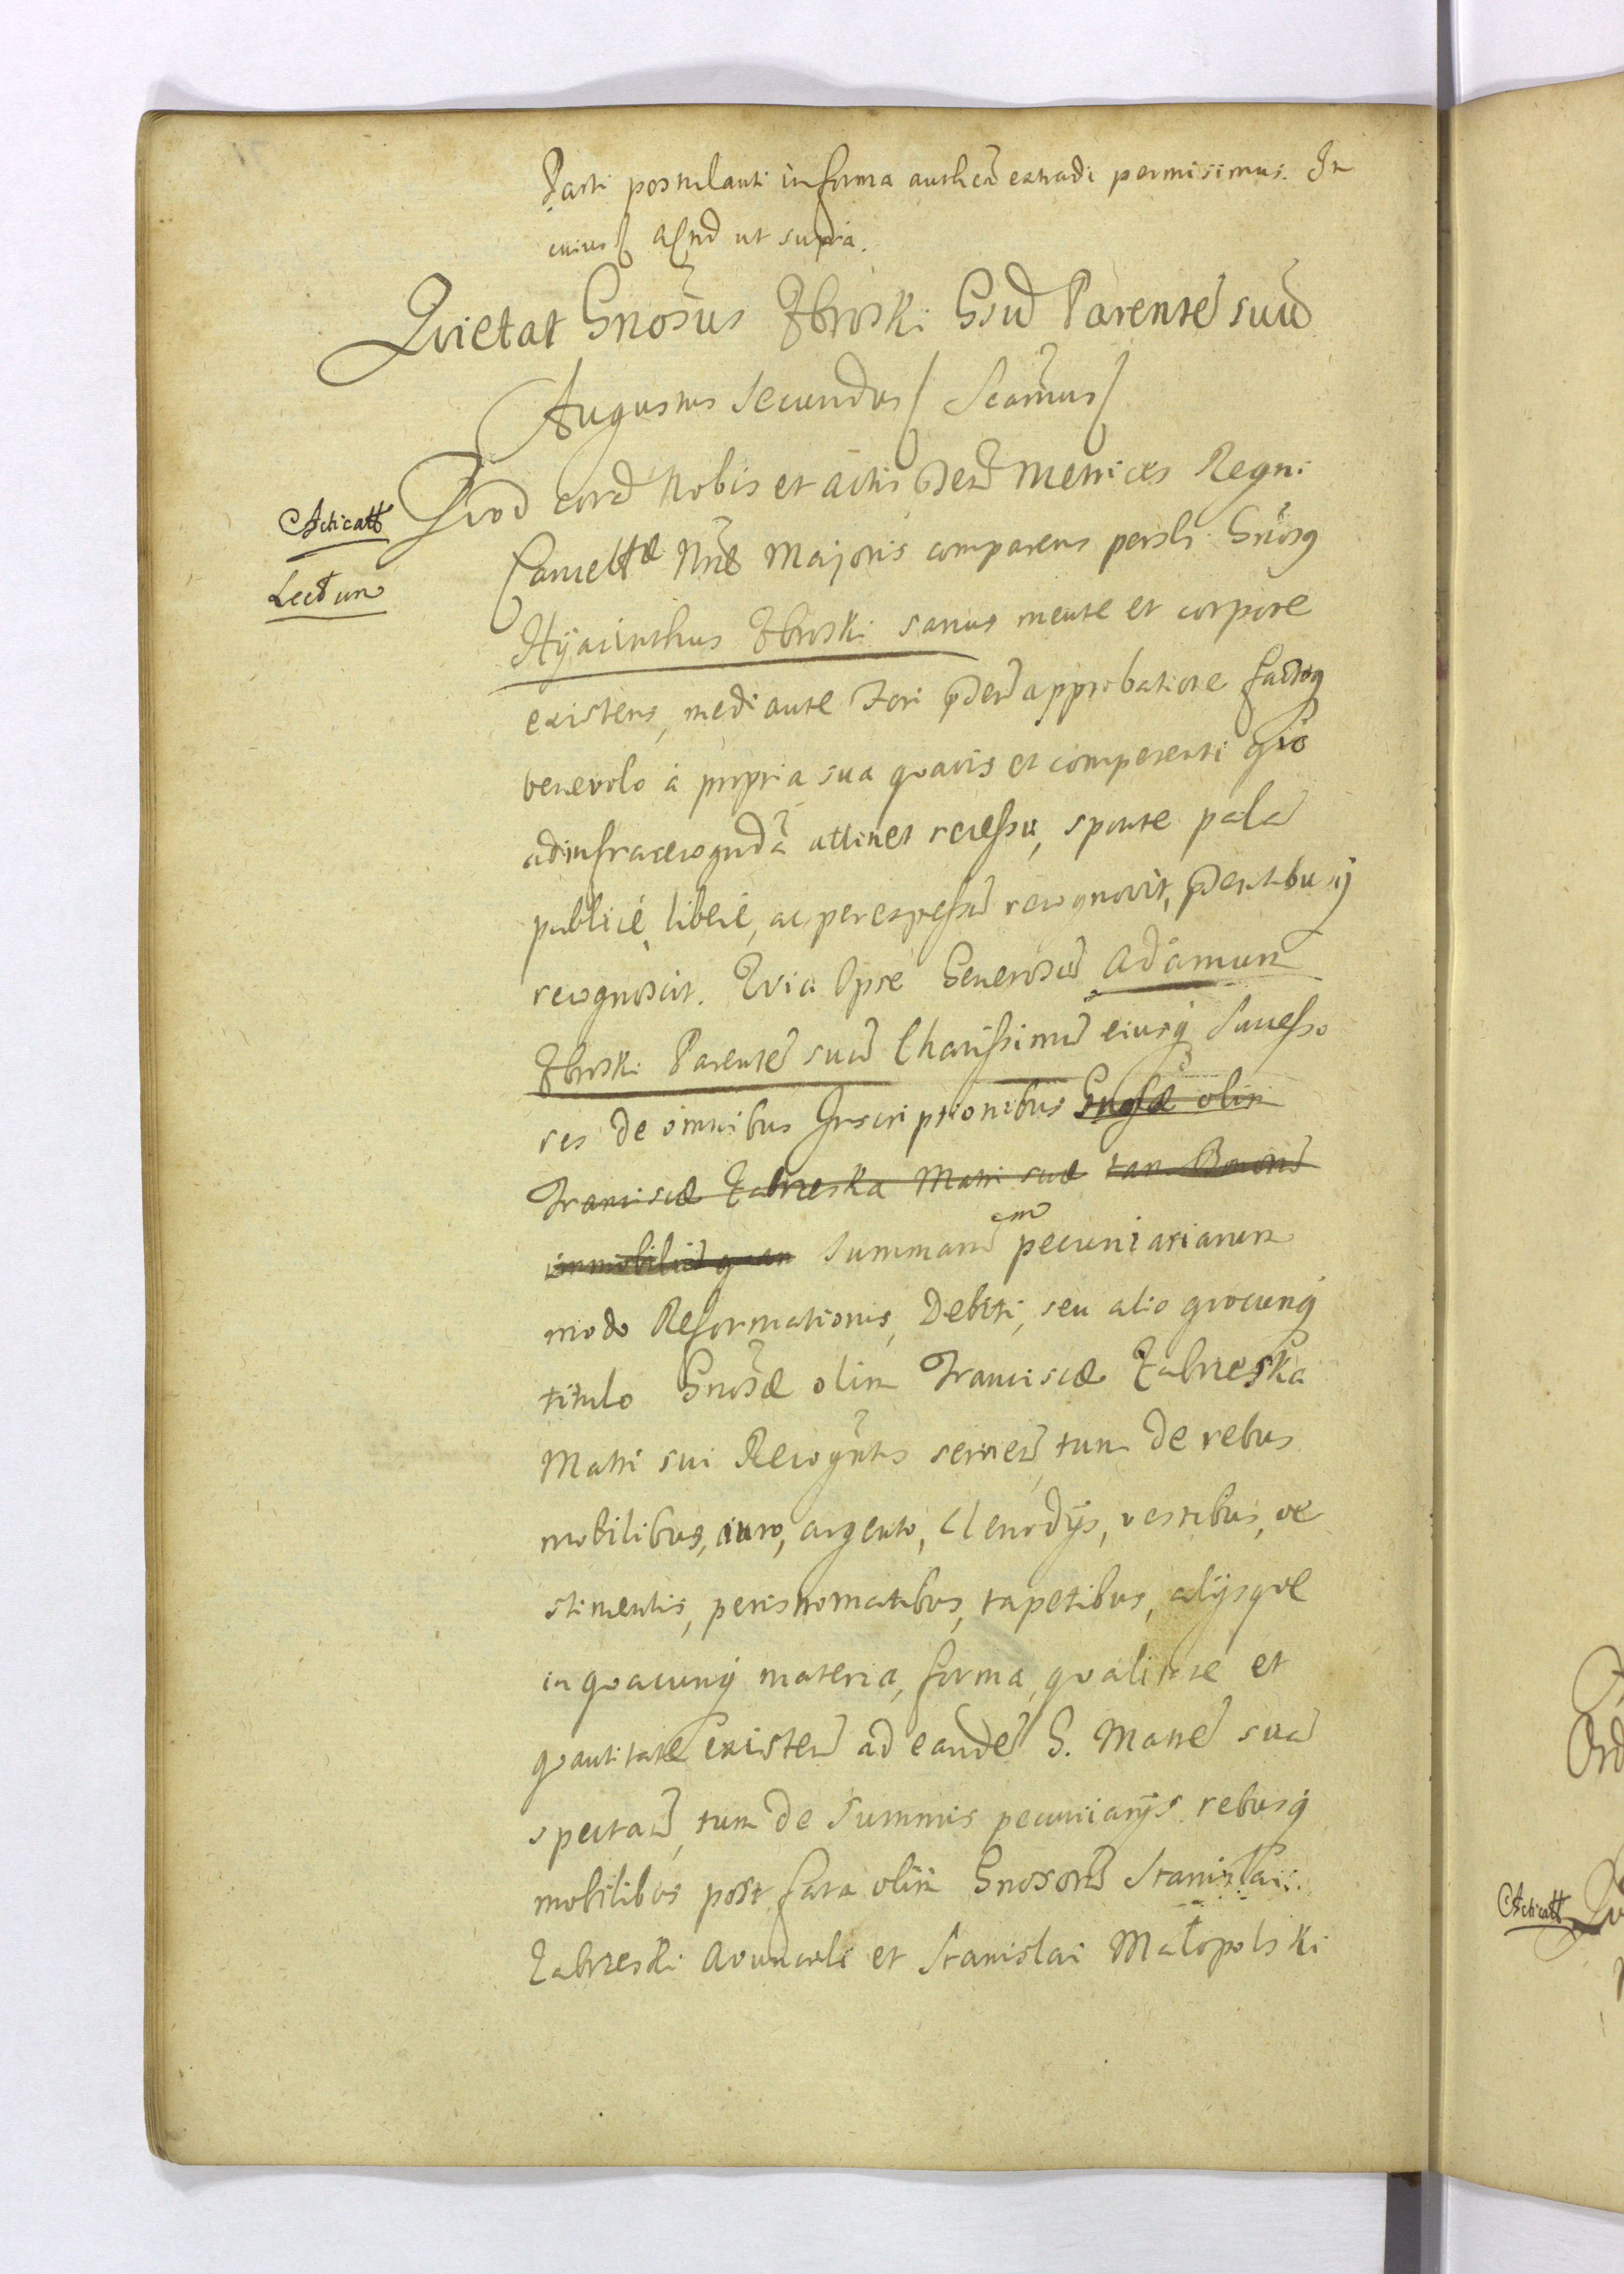 Parti postulanti in forma authcã extradi permisimus. In
cuius Actũ ut supra.
Quietat Gnosus Zbroski Gsũ Parentẽ suũ
Augustus Secundus Scamus
Acticatt
Lectum
Quod corã Nobis et actis pñtibẽ Metrices Regni
Cancell̃æ Nr̃æ Majoris comparens persli Gnosq
Hyacinthus Zbroski sanus mente et corpore
existens, mediante Fori approbatione factoq
benevolo à propria sua quavis et competenti qũo
ad infra recogndã attinet recessu, sponte palã
publicè, liberè, ac per expressũ recognovit, pñtibusq
recognoscit. Quia Ipse Generosũ Adamum
Zbroski Parentẽ suũ Charissimũ eiusq Successo
res de omnibus Inscriptionibus Gnosæ olim
Franciscæ Zabrzeska Matri suæ tam Bonorũ
immobiliũ quam Summarũ pecuniariarum
modo Reformationis, Debiti, seu alio quocunq
titulo Gnosæ olim Franciscæ Zabrzeska
Matri sui Recogñtis servieñ, tum de rebus
mobilibus, auro, argento, Clenodÿs, vestibus, ve
stimentis, peristromatibus, tapetibus, alÿsque
in quacunq materia, forma, qualitate et
quantitate existeñ ad eandẽ G. Matrẽ suã
spectañ, tum de Summis pecuniarÿs rebusq
mobilibus post fata olim Gnosorũ Stanislai
Zabrzeski Avunculi et Stanislai Małopolski
Ord
Acticatt